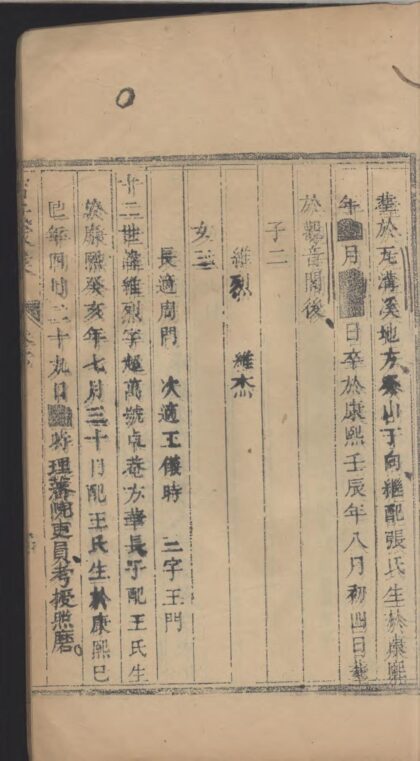 葬於瓦溝溪地方癸山丁向繼配張氏生於康熙
年月日卒於康熙壬辰年八月初四日葬
於觀音閣後
子二
維烈 維杰
女三
長適周門 次適王儀時 三字王門
廿二世諱維烈字廷萬號貞菴方華長子配王氏生
於康熙癸亥年七月三十日配王氏生於康熙己
巳年四月二十九日時理藩院吏員考授照磨